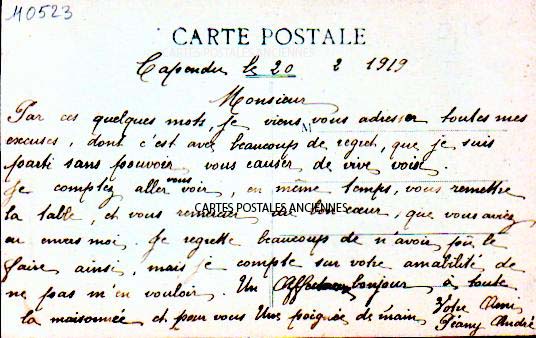 110523
CARTE POSTALE
Capendu le 20 2 1919
Monsieur
Par ces quelques mots, je viens vous adresser toutes mes
excuses, dont c'est avec beaucoup de regret, que je suis
parti sans pouvoir vous causer de vive voix.
Je comptez aller vous voir, en même temps, vous remettre
la table, et vous remercier du bon cœur, que vous aviez
CARTES POSTALES ANCIENNES
eu envers moi. Je regrette beaucoup de n'avoir pu le
faire ainsi, mais je compte sur votre amabilité de
ne pas m'en vouloir. Un bonjour à toute
la maisonnée et pour vous Une poignée de main
Votre Ami
André